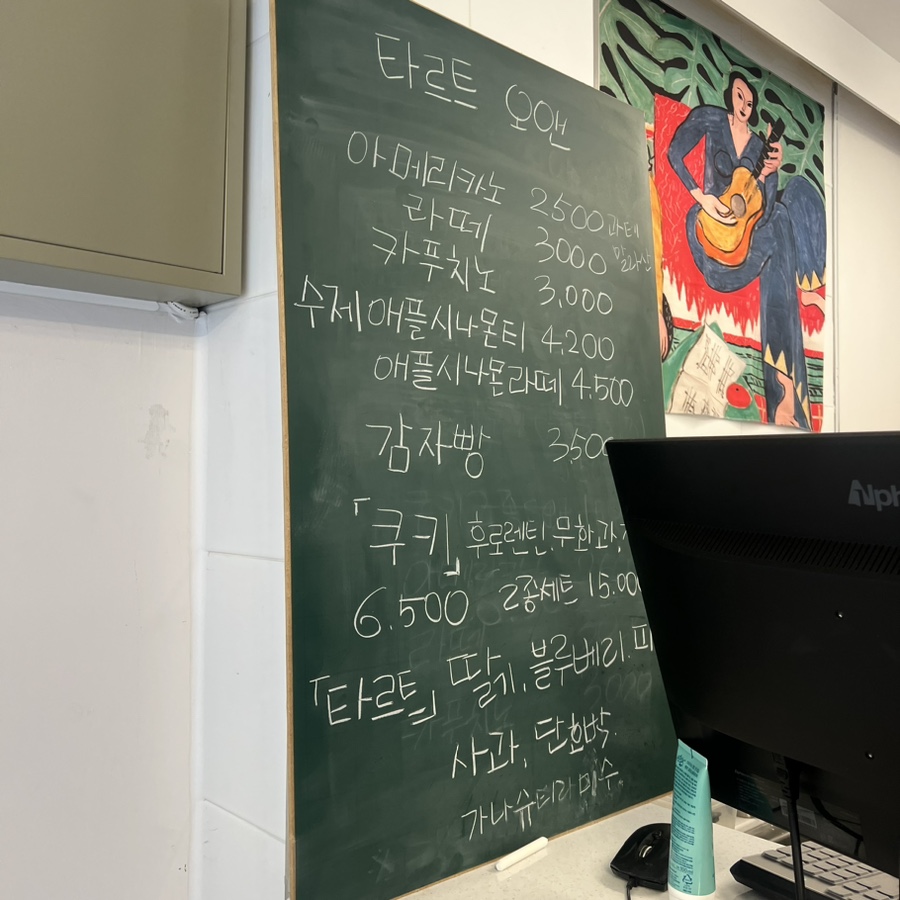 타르트 오앤
아메리카노 2500 과테
라떼 3000 말라산
카푸치노 3,000
수제애플시나몬티 4.200
애플시나몬라떼 4.500
감자빵 3,500
「쿠키」 후로렌틴.무화과,
6.500 2종세트 15.00
「타르트」 딸기.블루베리.피
사과, 단호박.
가나슈티라미수
Alph